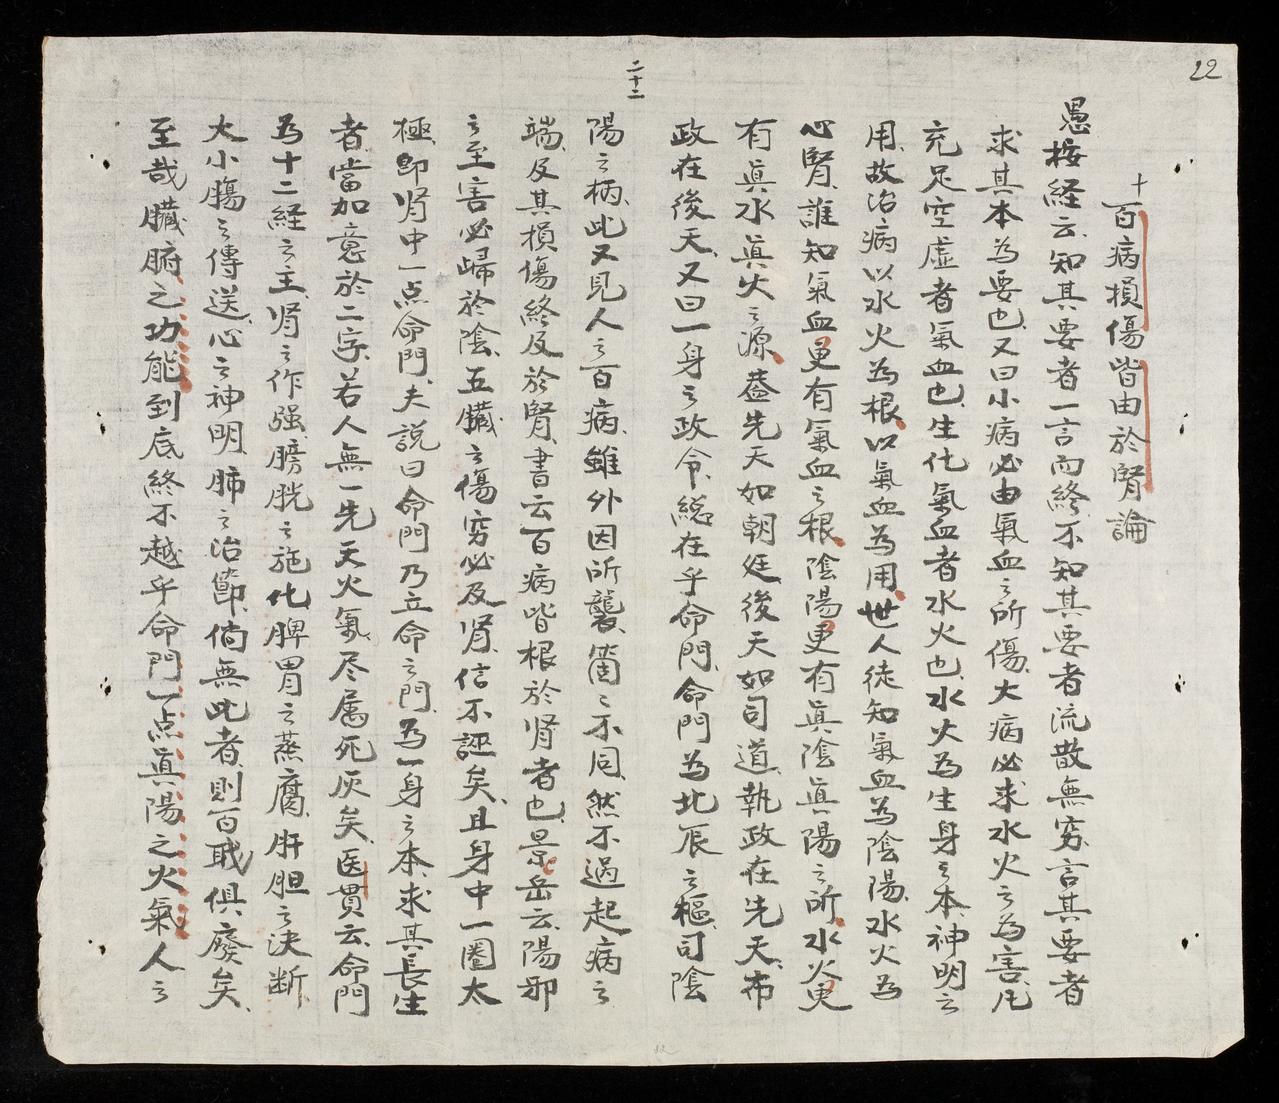 22
二十二
十
百病損傷皆由於腎論
愚按経云、知其要者一言而終、不知其要者流散無穷、言其要者
求其本為要也、又曰小病必由氣血之所傷、大病必求水火之為害、凡
充足空虛者氣血也、生化氣血者水火也、水火為生身之本、神明之
用、故治病以水火為根、以氣血為用、世人徒知氣血為陰陽、水火為
心腎、誰知氣血更有氣血之根、陰陽更有眞陰眞陽之所、水火更
有眞水眞火之源、蓋先天如朝廷、後天如司道、執政在先天、布
政在後天、又曰一身之政令、総在乎命門、命門為北辰之樞、司陰
陽之柄、此又見人之百病、雖外因所襲、箇〻不同、然不過起病之
端、及其損傷終及於腎、書云百病皆根於肾者也、景岳云、陽邪
之至害必歸於陰、五臓之傷穷必及肾、信不誣矣、且身中一圈太
極、即肾中一点命門、夫說曰命門乃立命之門、為一身之本、求其長生
者、當加意於二字、若人無一先天火氣、尽属死灰矣、医貫云、命門
為十二経之主、肾之作强、膀胱之施化、脾胃之蒸腐、肝胆之決断、
大小腸之傳送、心之神明、肺之治節、倘無此者、則百職俱廢矣、
至哉臓腑之功能、到底終不越乎命門一点眞陽之火氣、人之